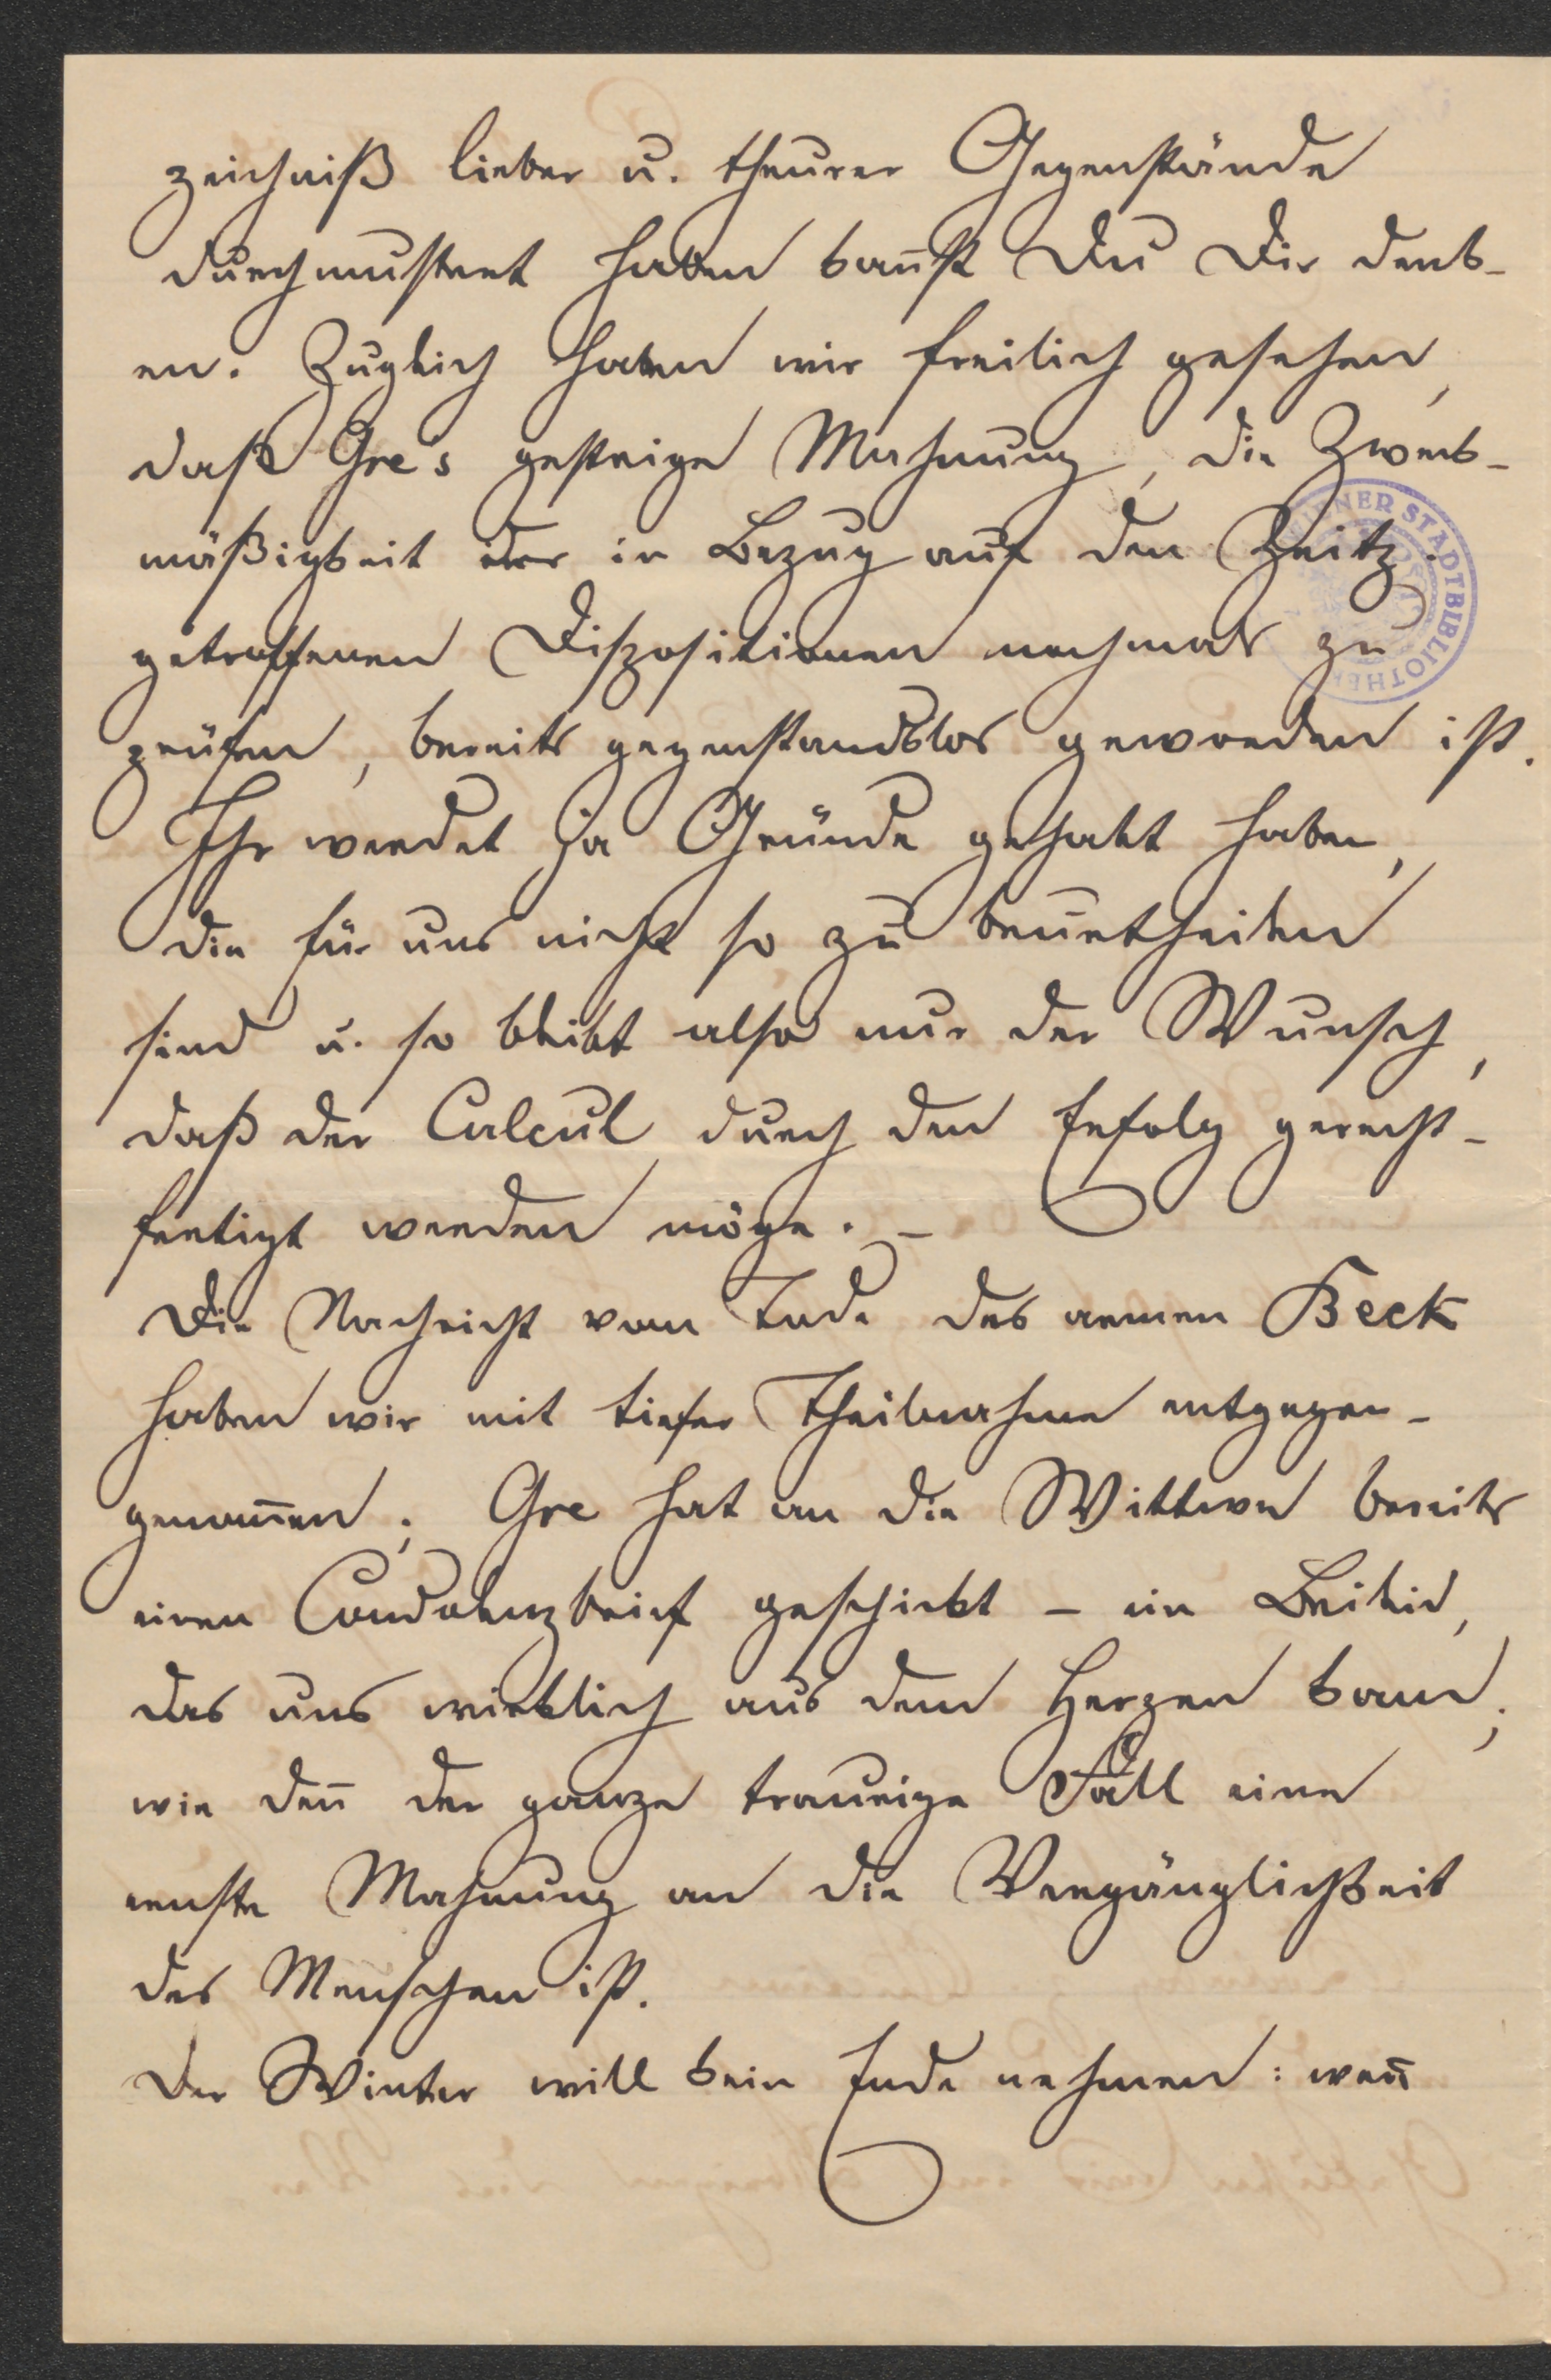 zeichniß lieber u. theurer Gegenstände
durchmustert haben kan̄st Du Dir denk-
en. Zugleich haben wir freilich gesehen,
daß Gre's gestrige Mahnung, die Zweck-
mäßigkeit der in Bezug auf den Zeitz.
getroffenen Dispositionen nochmals zu
prüfen, bereits gegenstandslos geworden ist.
Ihr werdet ja Gründe gehabt haben,
die für uns nicht so zu beurtheilen
sind u. so bleibt also nur der Wunsch,
daß der Calcul durch den Erfolg gerecht-
fertigt werden möge. –
Die Nachricht vom Tode des armen Beck
haben wir mit tiefer Theilnahme entgegen-
genom̄en; Gre hat an die Wittwe bereits
einen Condolenzbrief geschickt – ein Beileid,
das uns wirklich aus dem Herzen kam,
wie den̄ der ganze traurige Fall eine
ernste Mahnung an die Vergänglichkeit
des Menschen ist.
Der Winter will kein Ende nehmen: wen̄
WIENER STADTBIBLIOTHEK